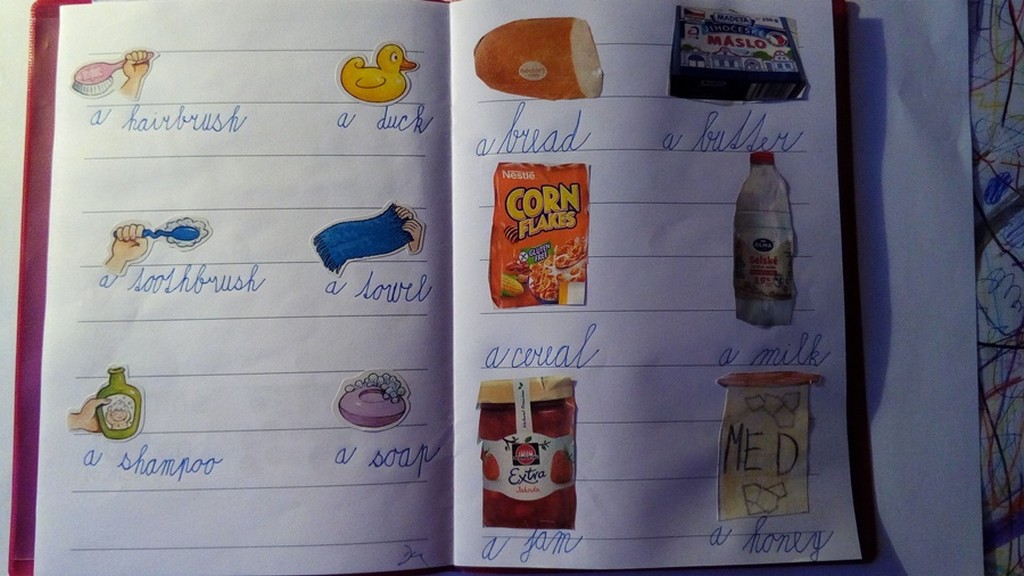 a hairbrush
a duck
a toothbrush
a towel
a shampoo
a soap
MADETA
JIHOČESKÉ
MÁSLO
a bread
a butter
Nestlé
CORN
FLAKES
GLUTEN
FREE
Selské
a cereal
a milk
Extra
Jahoda
MED
a jam
a honey